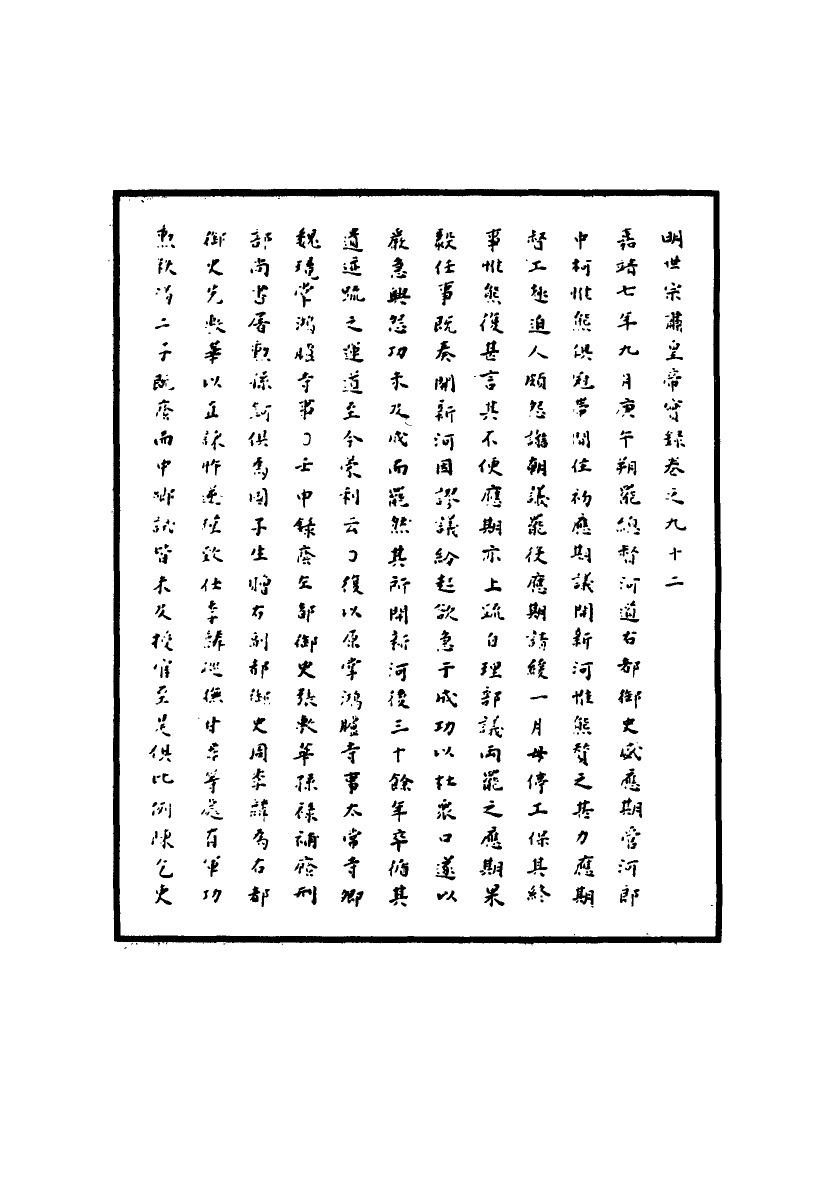 明世宗肅皇帝寔錄卷之九十二
嘉靖七年九月庚午朔罷總督河道右都御史盛應期管河郎
中柯惟熊俱冠帶閒住初應期議開新河惟熊贊之甚力應期
督工趣迫人頗怨讟朝議罷役應期請緩一月毋停工保其終
事惟熊復甚言其不便應期亦上疏自理部議兩罷之應期果
毅任事既奏開新河因謬議紛起欲急于成功以杜眾口遂以
嚴急興怨功未及成而罷然其所開新河後三十餘年卒循其
遺迹疏之運道至今蒙利云〇復以原掌鴻臚寺事太常寺卿
魏璄掌鴻臚寺事〇壬申錄廕左都御史張敷華孫祿補廕刑
部尚書屠勳孫鈳俱為國子生贈右副都御史周季麟為右都
御史先敷華以直諫忤逆瑾致仕季麟巡撫甘肅等處有軍功
勳秩滿二子既廕而中鄉試皆未及授官至是俱比例陳乞史